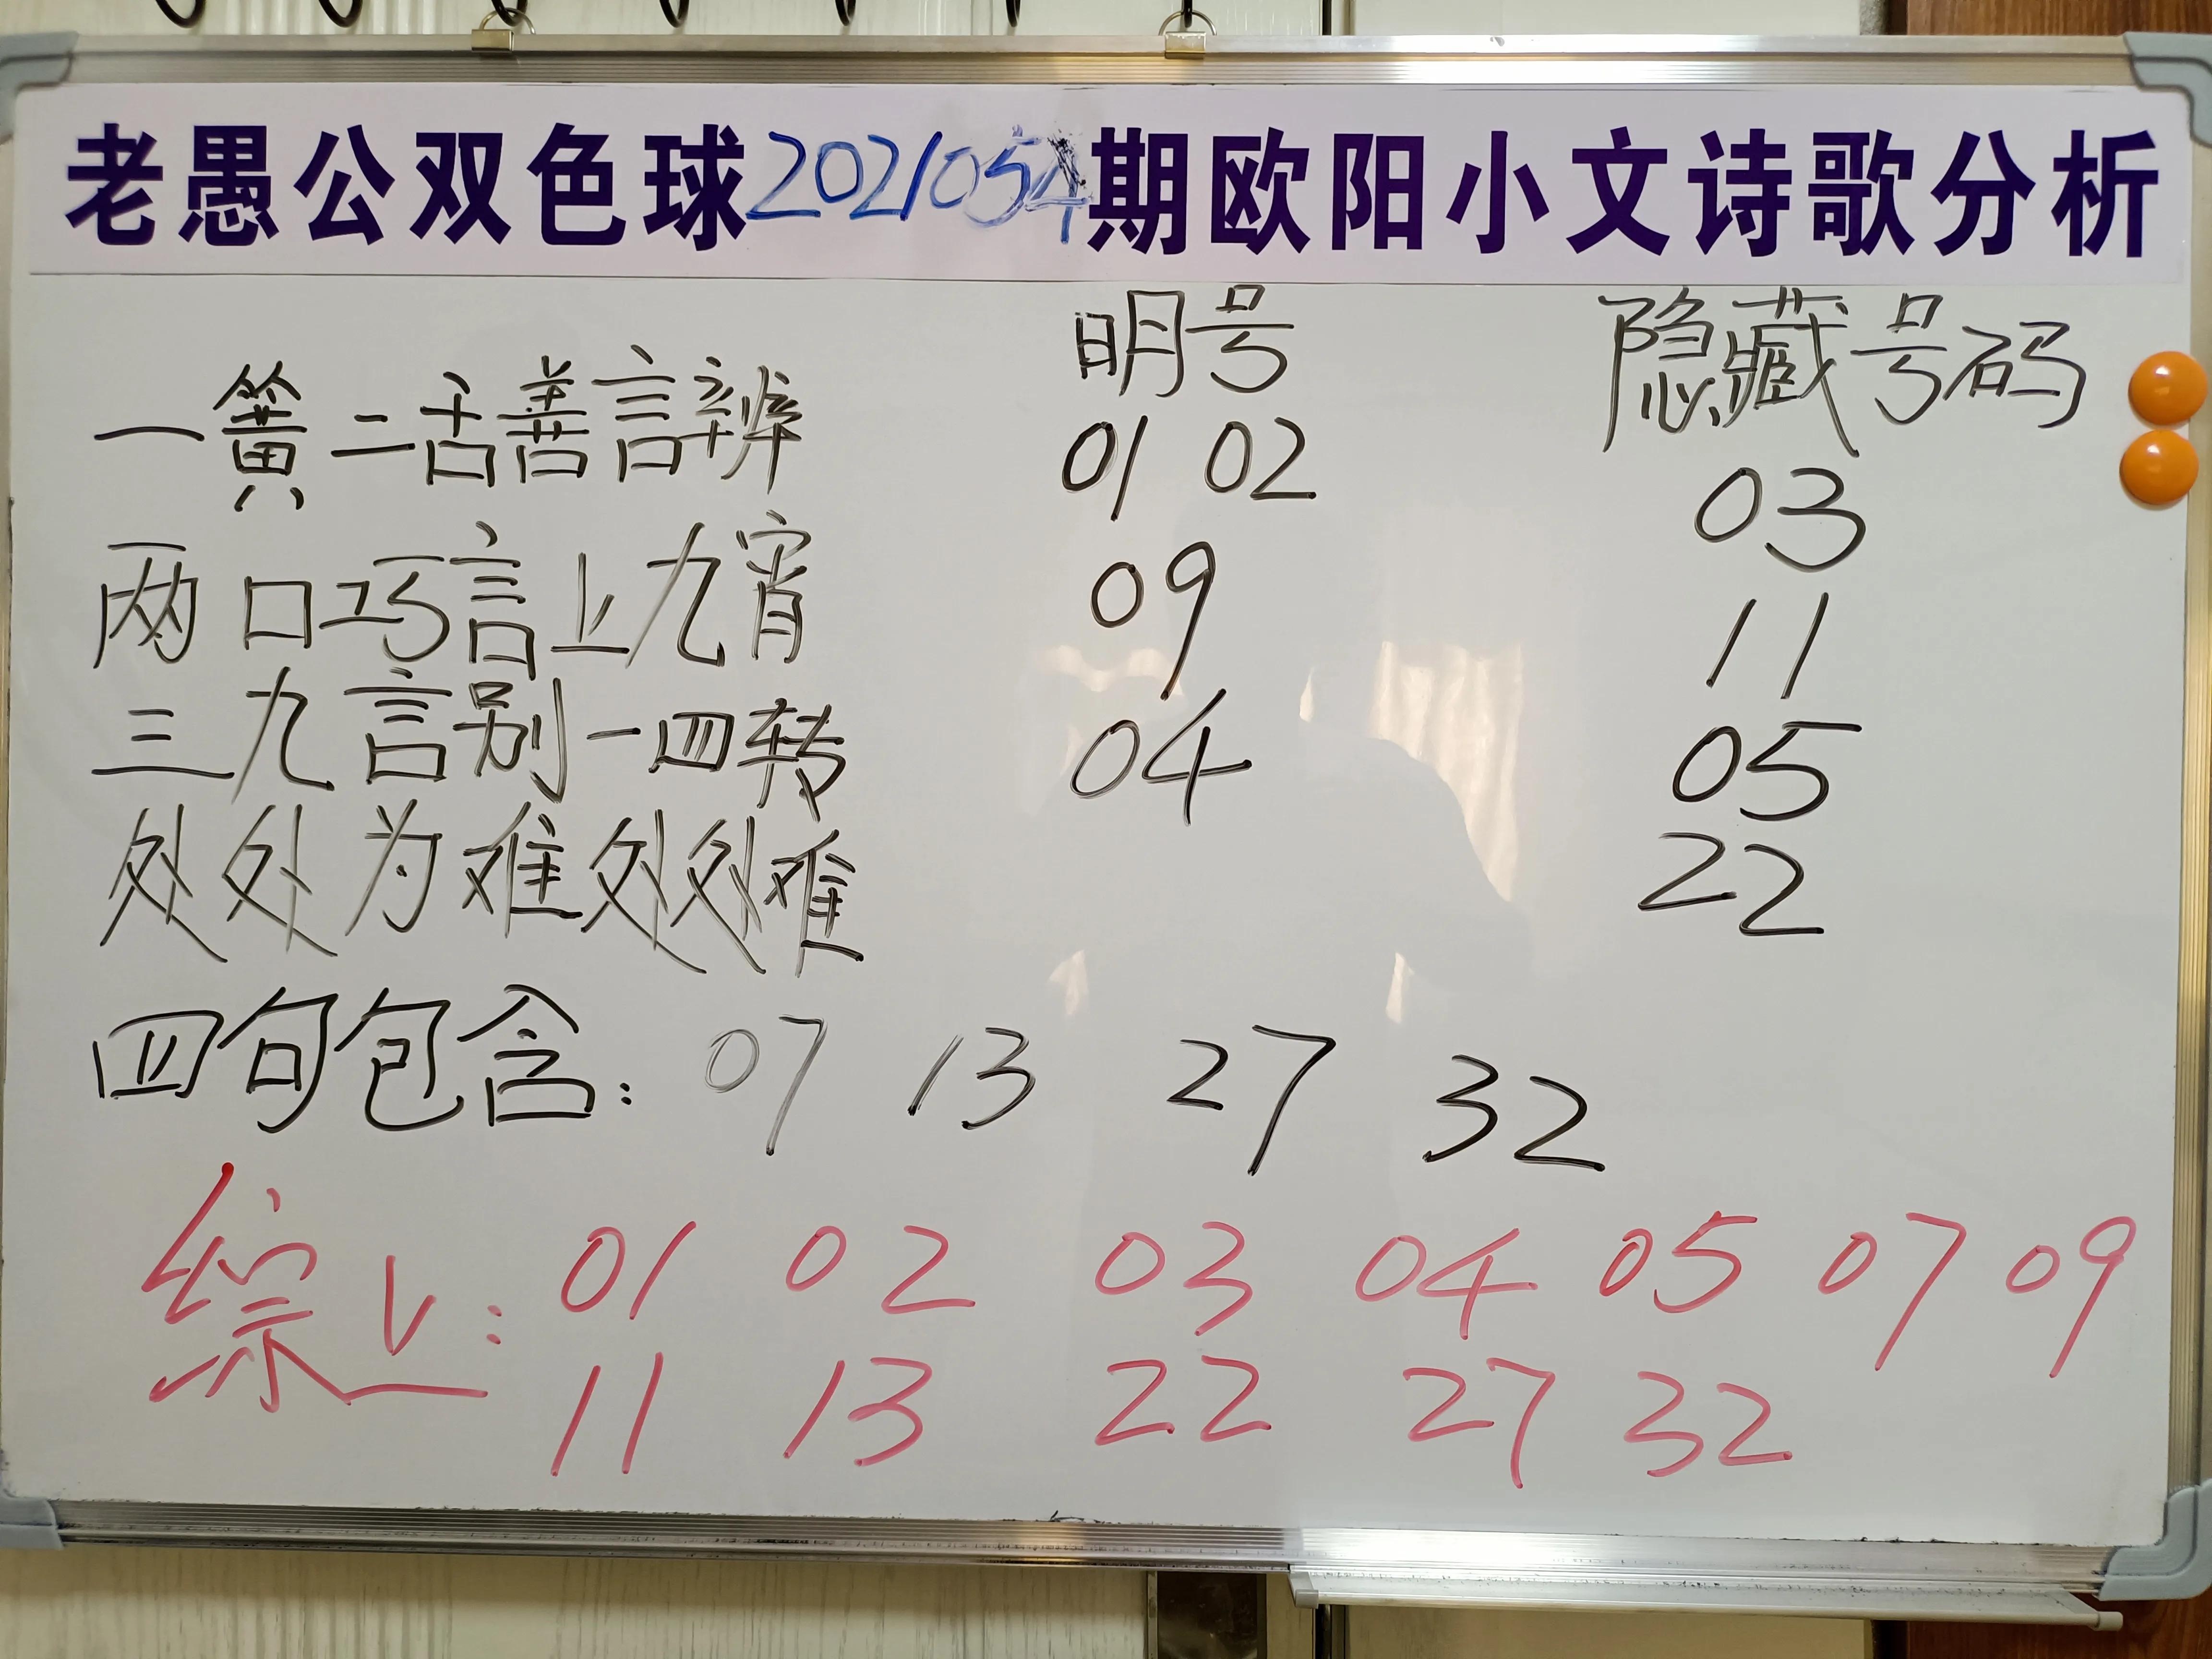 老愚公双色球2021054期欧阳小文诗歌分析
明号 隐藏号码
一簧二舌善言辨 01 02 03
两口巧言上九宵 09 11
三九言别一四转 04 05
处处为难处处难 22
四句包含: 07 13 27 32
综上: 01 02 03 04 05 07 09
11 13 22 27 32